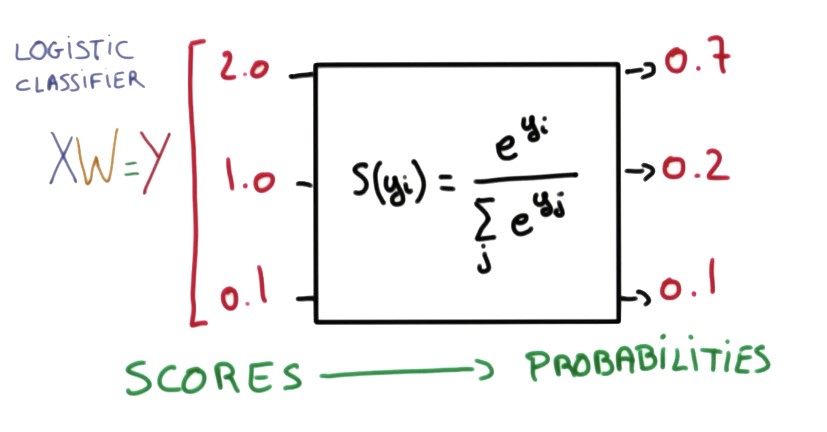 LOGISTIC
CLASSIFIER
XW=Y
2.0
1.0
0.1
S(yi) = e^yi / Σj e^yj
0.7
0.2
0.1
SCORES → PROBABILITIES